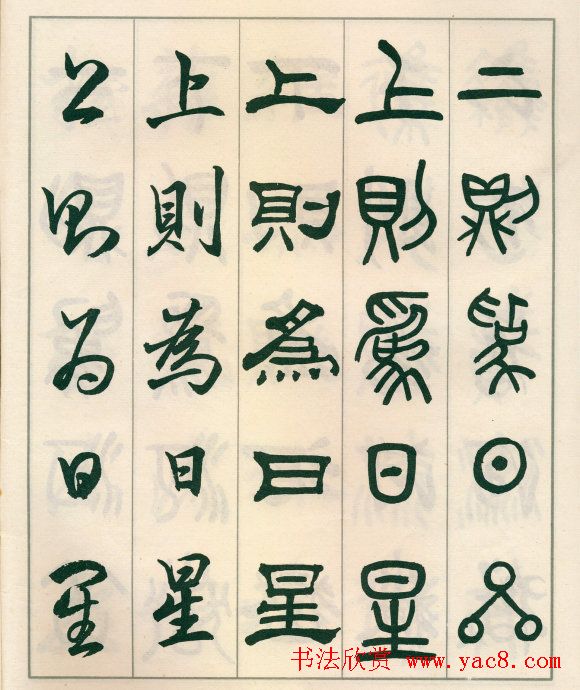 上則爲日星
上則爲日星
上則為日星
上則為日星
上则为日星
书法欣赏 www.yac8.com